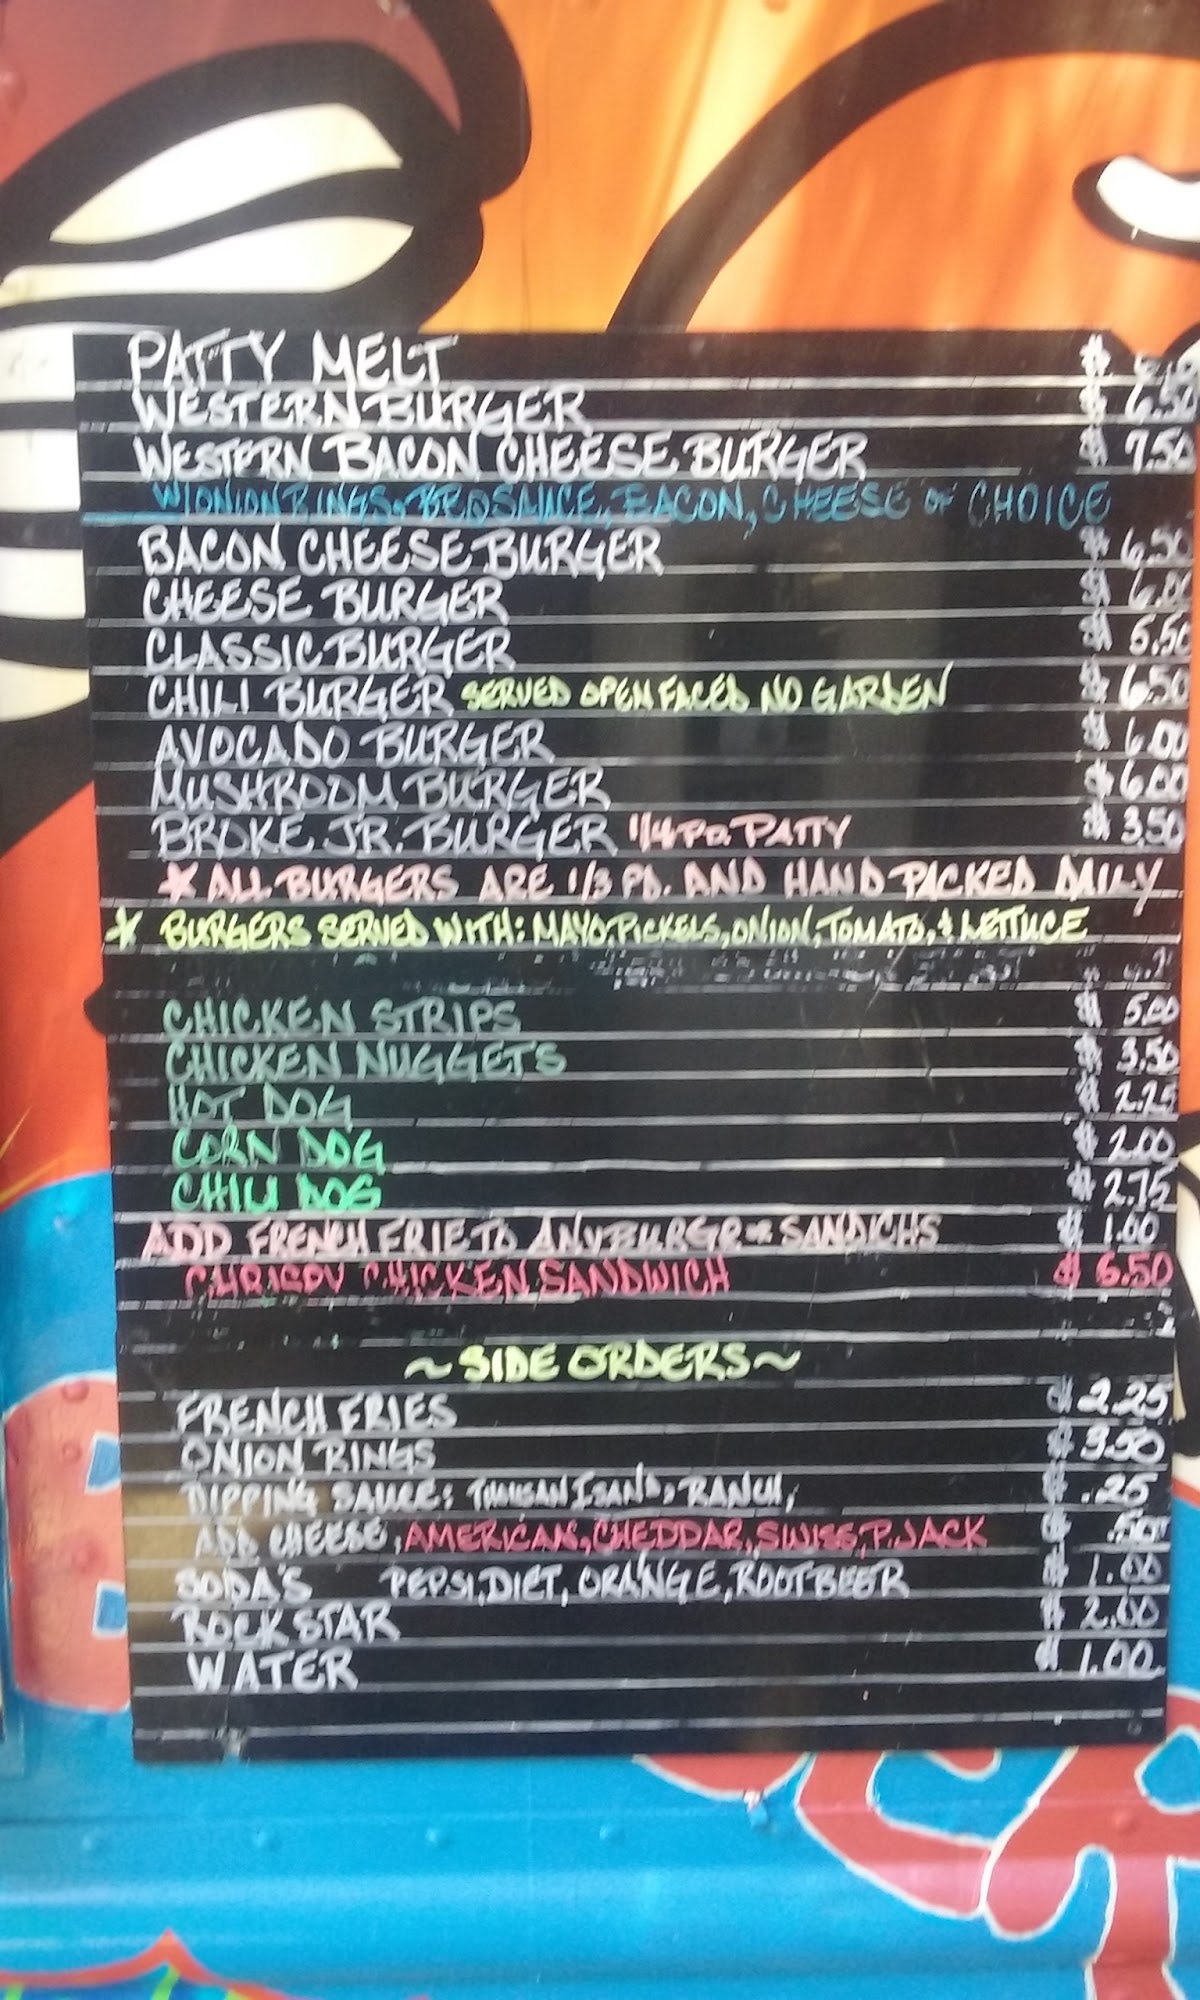 PATTY MELT $
WESTERN BURGER $ 6.50
WESTERN BACON CHEESE BURGER $ 7.50
W/ONION RINGS & BBQ SAUCE, BACON, CHEESE OF CHOICE
BACON CHEESE BURGER $ 6.50
CHEESE BURGER $ 6.00
CLASSIC BURGER $ 5.50
CHILI BURGER SERVED OPEN FACED NO GARDEN $ 6.50
AVOCADO BURGER $ 6.00
MUSHROOM BURGER $ 6.00
BROKE JR. BURGER 1/4 PD. PATTY $ 3.50
* ALL BURGERS ARE 1/3 PD. AND HAND PACKED DAILY
* BURGERS SERVED WITH: MAYO, PICKELS, ONION, TOMATO, & LETTUCE
CHICKEN STRIPS $ 5.00
CHICKEN NUGGETS $ 3.50
HOT DOG $ 2.25
CORN DOG $ 2.00
CHILI DOG $ 2.75
ADD FRENCH FRIE TO ANY BURGR OR SANDICHS $ 1.00
CHRISPY CHICKEN SANDWICH $ 6.50
~ SIDE ORDERS ~
FRENCH FRIES $ 2.25
ONION RINGS $ 3.50
DIPPING SAUCE: THOUSAN ISAND, RANCH, $ .25
ADD CHEESE, AMERICAN, CHEDDAR, SWISS, P. JACK $ .50
SODA'S PEPSI, DIET, ORANGE, ROOT BEER $ 1.00
ROCKSTAR $ 2.00
WATER $ 1.00